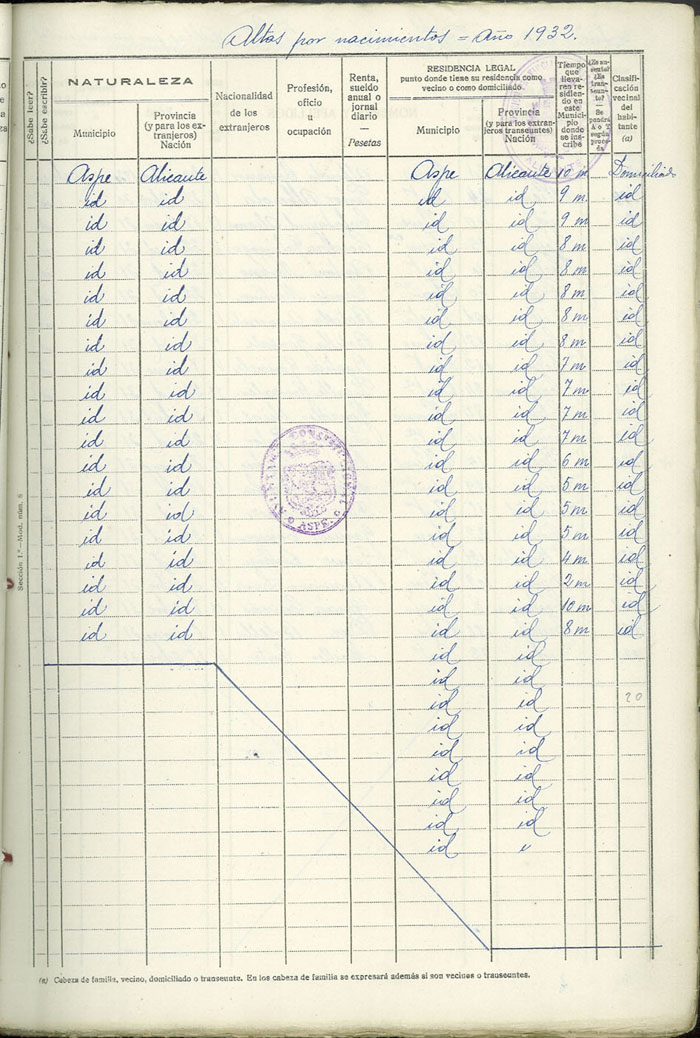 Altas por nacimientos = Año 1932.
¿Sabe leer?
¿Sabe escribir?
NATURALEZA
Municipio
Provincia
(y para los ex-
tranjeros)
Nación
Nacionalidad
de los
extranjeros
Profesión,
oficio
u
ocupación
Renta,
sueldo
anual o
jornal
diario
—
Pesetas
RESIDENCIA LEGAL
punto donde tiene su residencia como
vecino o como domiciliado
Municipio
Provincia
(y para los extran-
jeros transeuntes)
Nación
Tiempo
que
lleva-
ren re-
sidien-
do en
este
Munici-
pio
donde
se ins-
cribe
¿Es au-
sente?
¿Es
tran-
seun-
te?
—
Se
pondrá
A o T
según
proce-
da
Clasifi-
cación
vecinal
del
habi-
tante
(a)
Aspe Alicante Aspe Alicante 10 m Domiciliado
id id id id 9 m id
id id id id 9 m id
id id id id 8 m id
id id id id 8 m id
id id id id 8 m id
id id id id 8 m id
id id id id 8 m id
id id id id 7 m id
id id id id 7 m id
id id id id 7 m id
id id id id 7 m id
id id id id 6 m id
id id id id 5 m id
id id id id 5 m id
id id id id 5 m id
id id id id 4 m id
id id id id 2 m id
id id id id 10 m id
id id id id 8 m id
id id
id id
id id 20
id id
id id
id id
id id
id id
id
Sección 1.ª—Mod. núm. 8
CONSTITUCIONAL
ASPE
(a) Cabeza de familia, vecino, domiciliado o transeunte. En los cabeza de familia se expresará además si son vecinos o transeuntes.